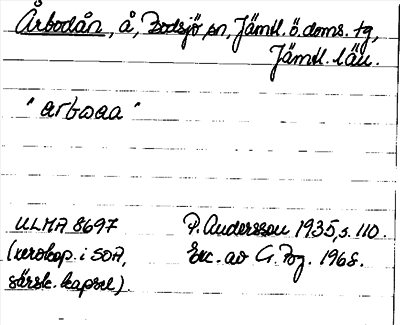 Årbodån, å, Bodsjö sn, Jämtl. ö. doms. tg,
Jämtl. län.
"arbwaa"
ULMA 8697 P. Andersson 1935, s. 110.
(xerokop. i SOA, Exc. av G. Bg. 1968.
särsk. kapsel).